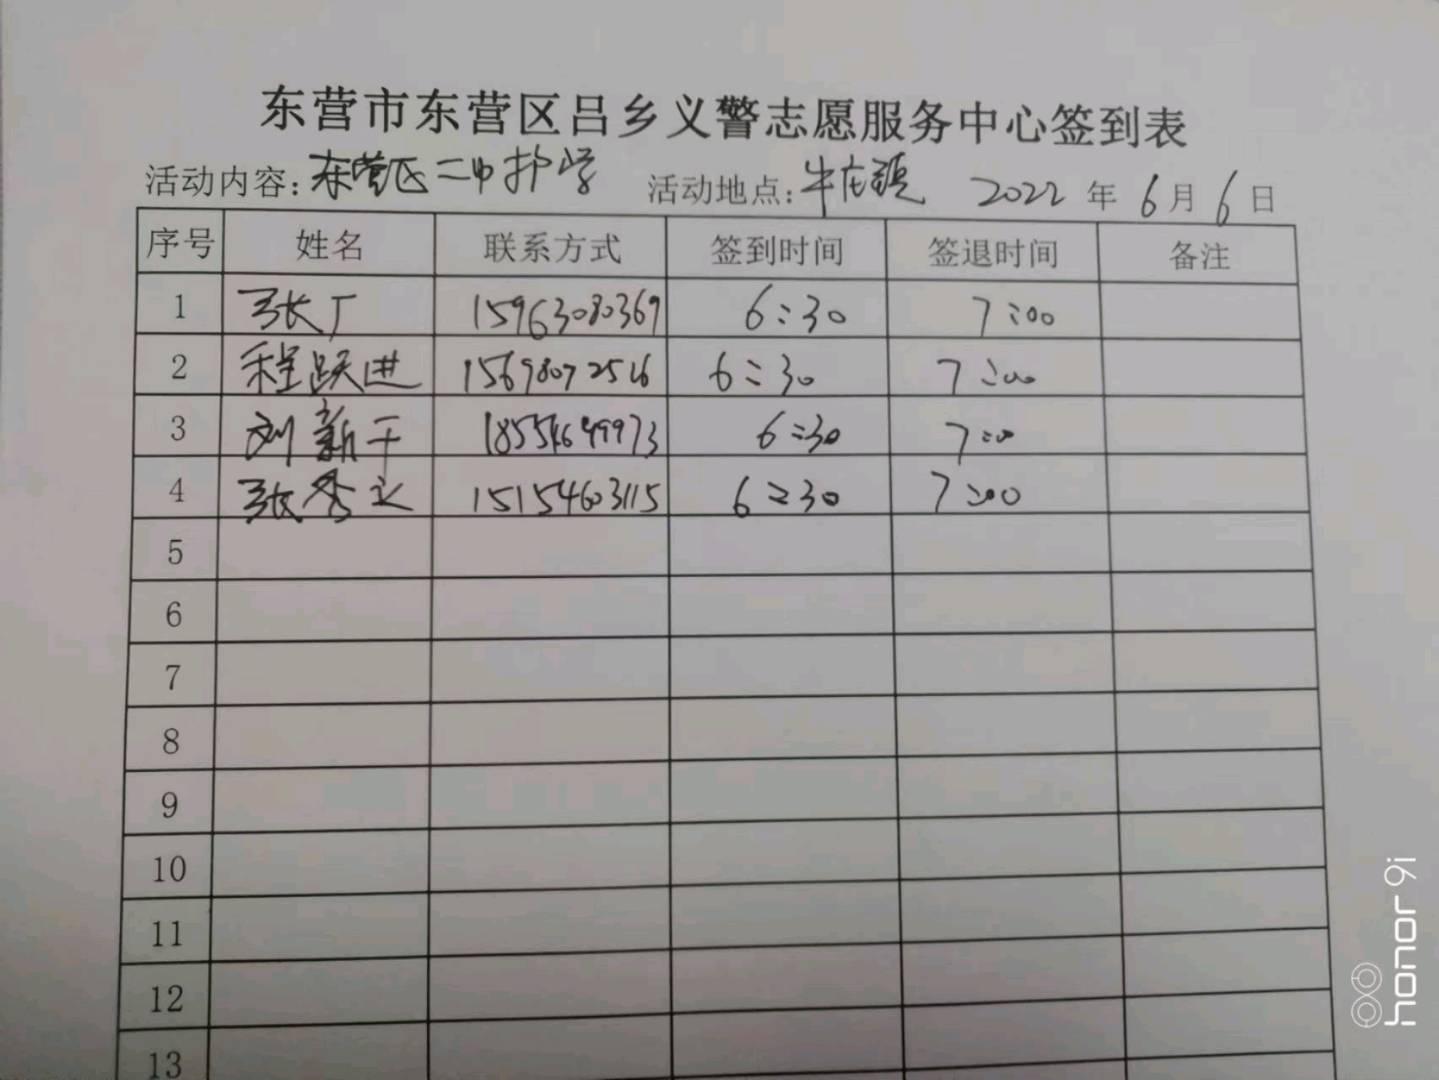 东营市东营区吕乡义警志愿服务中心签到表
活动内容:东营区二中护学 活动地点:牛庄镇 2022年6月6日
序号 姓名 联系方式 签到时间 签退时间 备注
1 张广 15963080369 6:30 7:00
2 程跃进 15698072516 6:30 7:00
3 刘新干 18554649973 6:30 7:00
4 张秀文 15154603115 6:30 7:00
5
6
7
8
9
10
11
12
13
honor 9i